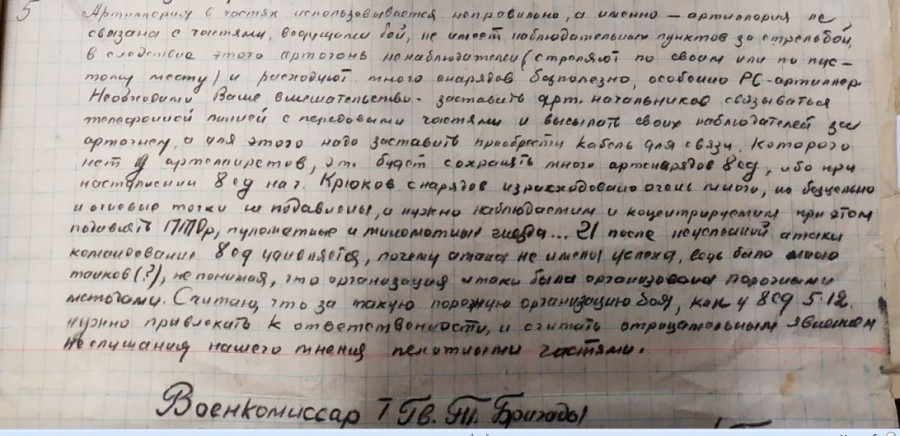 5
Артиллерия в частях использовывается неправильно, а именно — артиллория не
связана с частями, ведущими бой, не имеет наблюдательных пунктов за стрельбой,
в следствие этого артогонь ненаблюдателен (стреляют по своим или по пус-
тому месту) и расходуют много снарядов безполезно, особенно РС-артиллер.
Необходимо Ваше вмешательство - заставить арт. начальников связываться
телефонной линией с передовыми частями и высылать своих наблюдателей за
артогнем, а для этого надо заставить приобрести кабель для связи, которого
нет у артеллиристов, это будет сохранять много артснарядов 8сд, ибо при
наступлении 8сд на г. Крюков снарядов израсходовано очень много, но безцельно
и огневые точки не подавлены, а нужно наблюдаемым и коцентрируемым при этом
подавлять ПТОр, пулеметные и минометные гнезда... И после неуспешной атаки
командование 8сд удивляется, почему атака не имела успеха, ведь было много
танков (?), не понимая, что организация атаки была организована порочными
методами. Считаю, что за такую порочную организацию боя, как у 8сд 5.12.
нужно привлекать к ответственности, и считать отрицательным явлением
неслушания нашего мнения пехотными частями.
Военкомиссар 1 Гв. Тп. Бригады